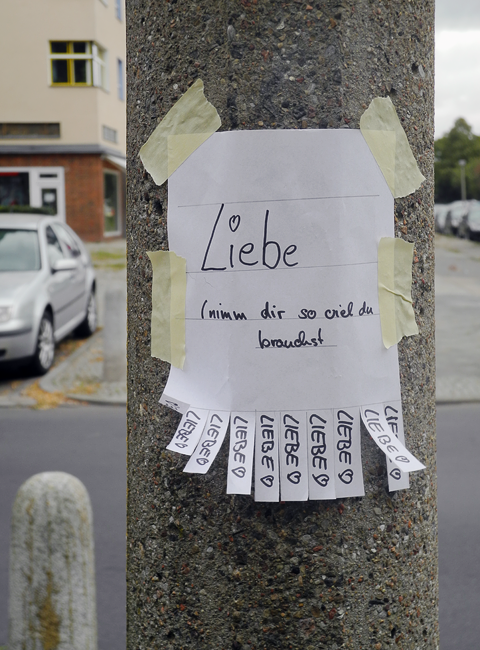 Liebe
(nimm dir so viel du
brauchst
LIEBE♡
LIEBE♡
LIEBE♡
LIEBE♡
LIEBE♡
LIEBE♡
LIEBE♡
LIEBE♡